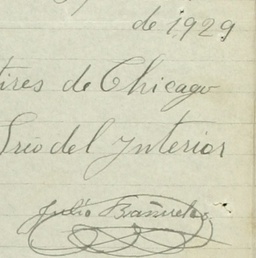 de 1929
tires de Chicago
Srio del Interior
Julio Bañuelos